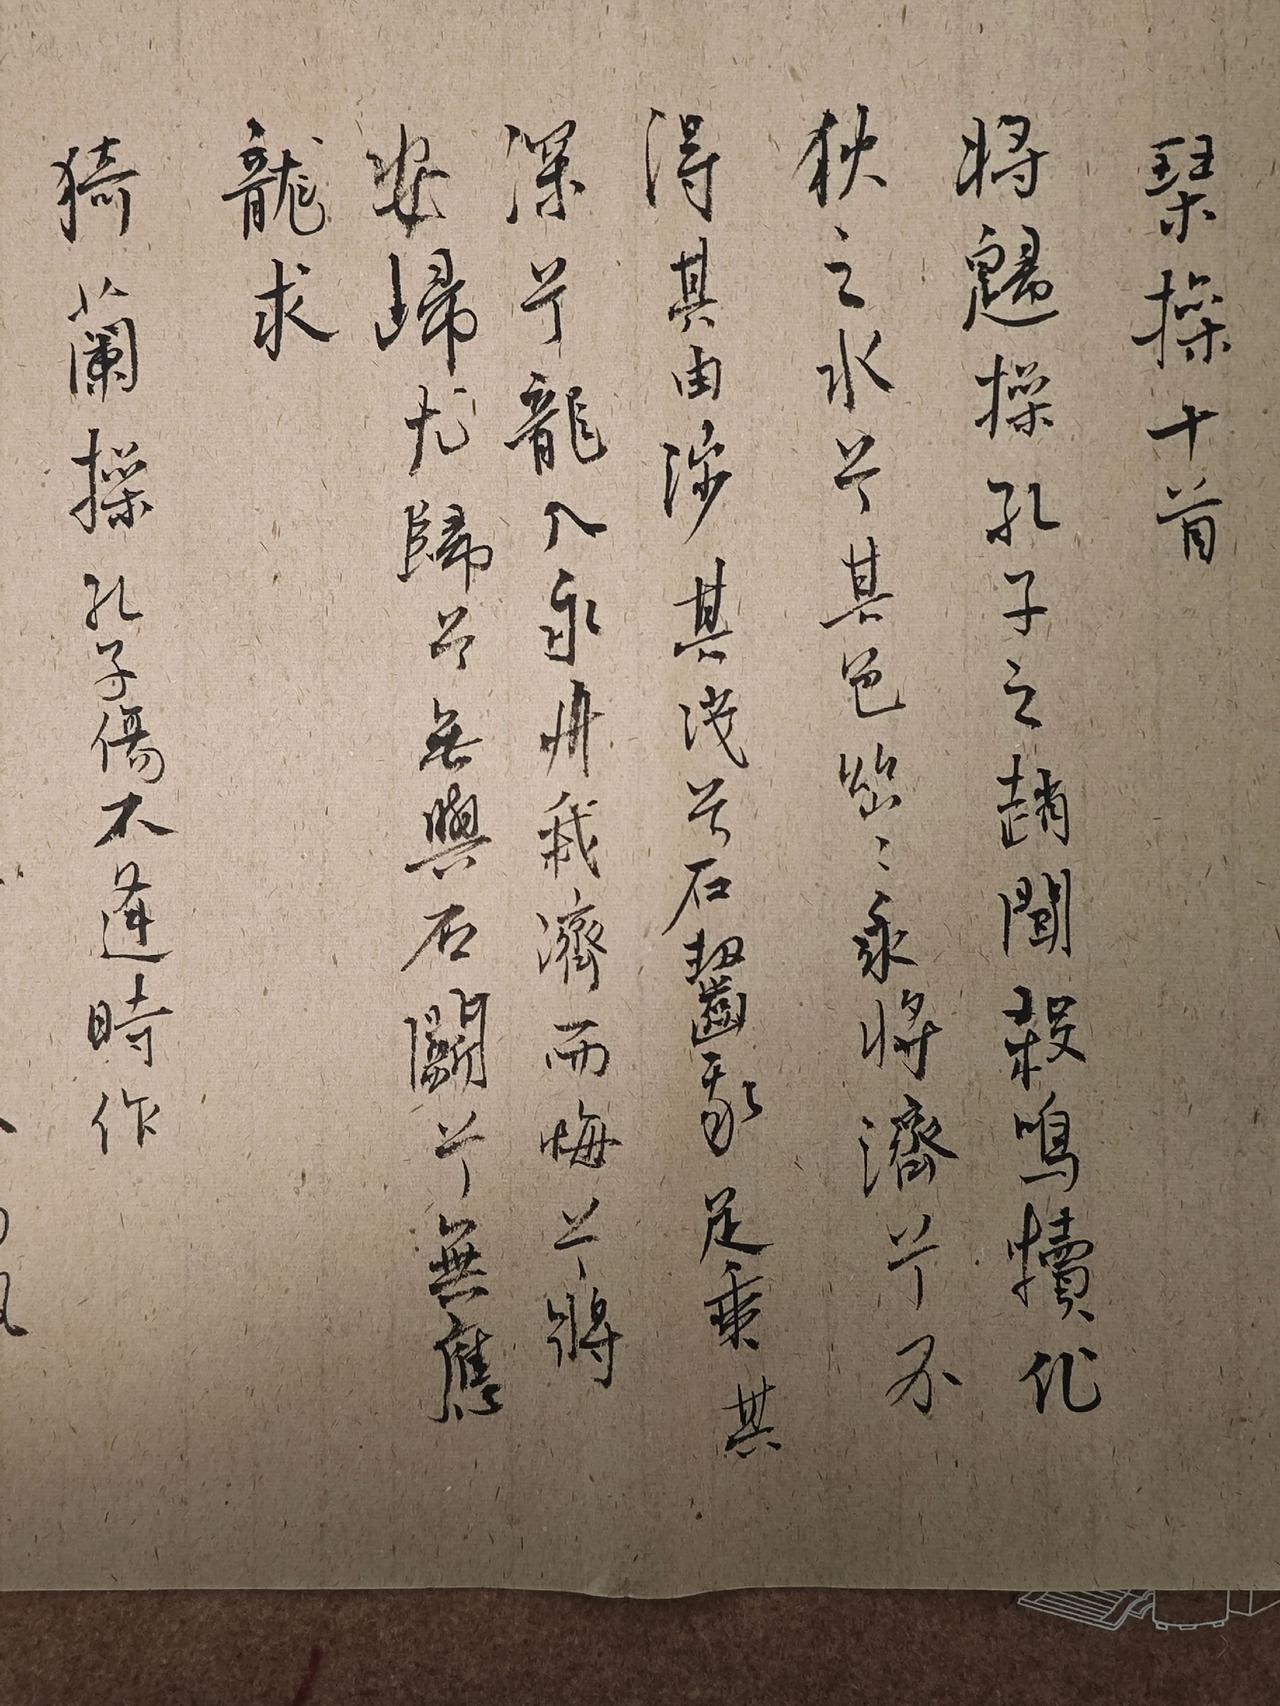 琴操十首
將歸操孔子之趙聞殺鳴犢作
狄之水兮其色幽〻我將濟兮不
得其由涉其淺兮石齧我足乘其
深兮龍入我舟我濟而悔兮將
安歸尤歸兮無與石鬭兮無應
龍求
猗蘭操孔子傷不逢時作